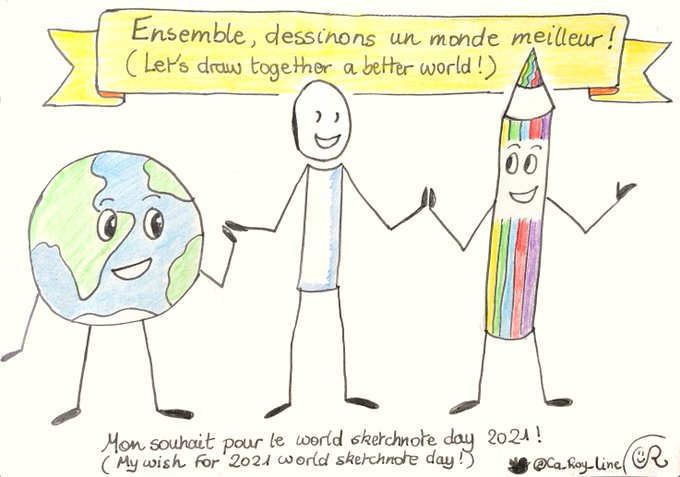 Ensemble, dessinons un monde meilleur !
(Let's draw together a better world !)
Mon souhait pour le world sketchnote day 2021 !
(My wish for 2021 world sketchnote day !)
@Ca_Roy_Line